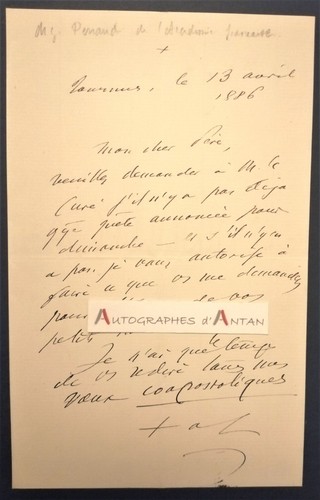 Mgr Perraud de l'Académie française.
+
le 13 avril
1886
Mon cher Père,
veuillez demander à M. le
Curé s'il n'y a pas déjà
qque quête annoncée pour
dimanche — et s'il n'y en
a pas, je vous autorise à
faire ce que vs me demandez
pour de vos
petits
AUTOGRAPHES d'ANTAN
Je n'ai que le temps
de vs redire tous mes
vœux coapostoliques
+